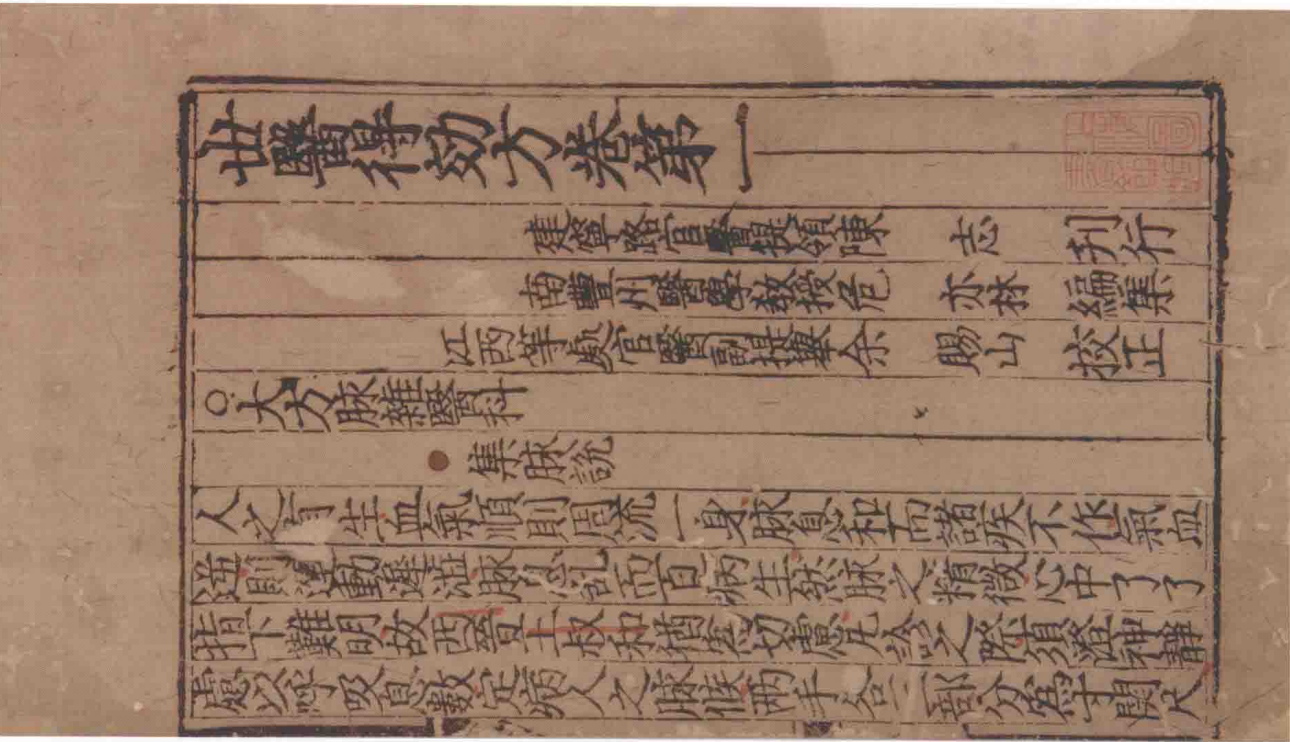 世醫得効方卷第一
建寧路官醫提領陳 志 刋行
南豐州醫學教授危 亦林 編集
江西等處官醫副提舉余 賜山 挍正
○大方脉雜醫科
集脉說
人之有生血氣順則周流一身脉息和而諸疾不作氣血
逆則運動遲澁脉息乱而百病生然脉之精微心中了了
指下難明故西晉王叔和猶為切慮凡診之際須澄神靜
慮以呼吸息數定病人之脉候兩手各三部分為寸關尺